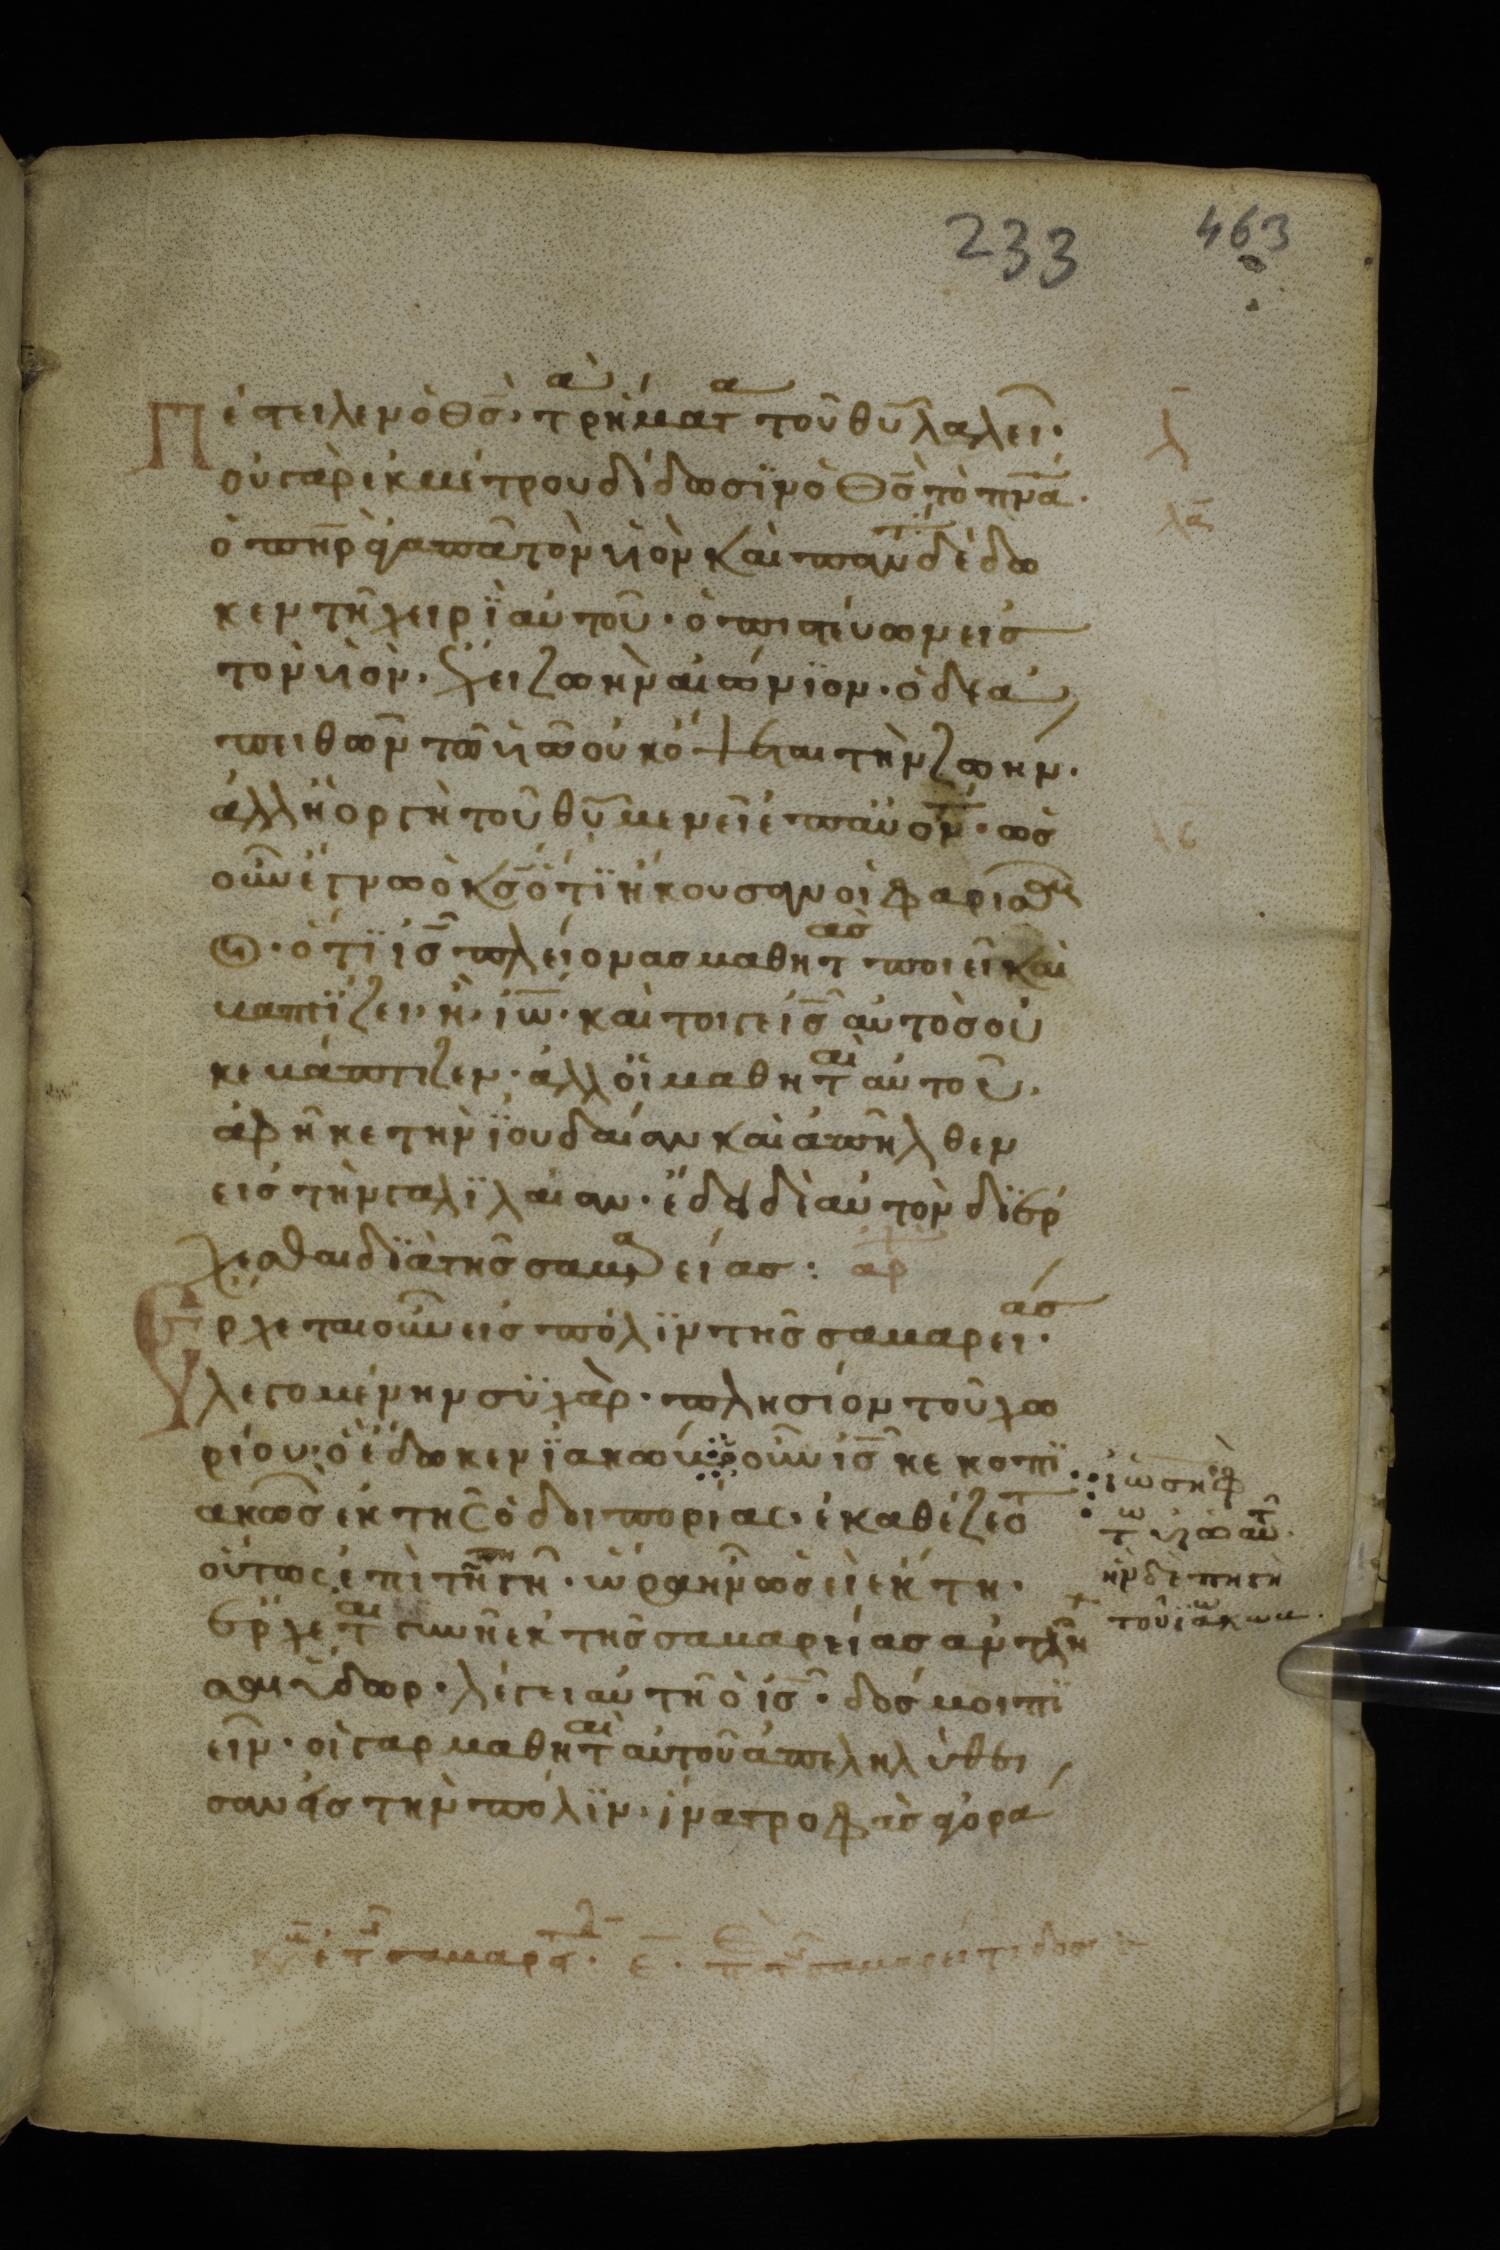 233 463
πέστειλεν ὁ θς̄· τὰ ῥήματα τοῦ θῡ λαλεῖ·
οὐ γὰρ ἐκ μέτρου δίδωσϊν ὁ θς̄ τὸ πνᾱ·
ὁ πηρ̄ ἀγαπᾶ τὸν ϋϊὸν καὶ πάντα δέδω
κεν τῆ χειρϊ αὐτοῦ· ὁ πιστεύων εἰς
τὸν ϋϊὸν· ἔχει ζωὴν αἰώνϊον· ὁ δὲ ἀ
πειθῶν τῶ ϋϊῶ οὐκ ὄψεται τὴν ζωήν·
ἀλλ ἡ ὀργὴ τοῦ θῡ μενεῖ ἐπ αὐτόν· ὡς
οὖν ἔγνω ὁ κς̄ ὅτϊ ἤκουσαν οἱ φαρισαῖ
οι· ὅτϊ ις̄ πλείονας μαθητὰς ποιεῖ καὶ
βαπτΐζει· ἢ· ἰω̄· καὶ τοιγε ις̄ αὐτὸς οὐ
κ ἐβάπτιζεν· ἀλλ οἱ μαθηταὶ αὐτοῦ·
ἀφῆκε τὴν ϊουδαίαν καὶ ἀπῆλθεν
εἰς τὴν γαλϊλαίαν· ἔδει δὲ αὐτὸν δϊέρ
χεσθαι δϊὰ τῆς σαμαρείας: ἀρ
Ἔρχεται οὖν εἰς πόλϊν τῆς σαμαρείας·
λεγομένην συχὰρ· πλησίον τοῦ χω
ρίου· ὃ ἔδωκεν ϊακὼβ ὁ οὖν ις̄ κεκοπϊ
ακὼς ἐκ τῆς ὁδοιπορίας· ἐκαθέζετο
οὕτως ἐπὶ τῆ πηγῆ· ὥρα ἦν ὡσεὶ ἕκτη·
ἔρχεται γυνὴ ἐκ τῆς σαμαρείας ἀντλῆ
σαι ὕδωρ· λέγει αὐτῆ ὁ ις̄· δός μοι πϊ
εῖν· οἱ γαρ μαθηταὶ αὐτοῦ ἀπεληλύθει
σαν εἰς τὴν πόλϊν· ἵνα τροφὰς ἀγορά
λ̄
λᾱ
ἰωσὴφ
τῶ υἱῶ αὐτοῦ·
ἦν δὲ πηγὴ
τοῦ ϊακώβ·
σαμαρ
ε̄· σαμαρείτιδος